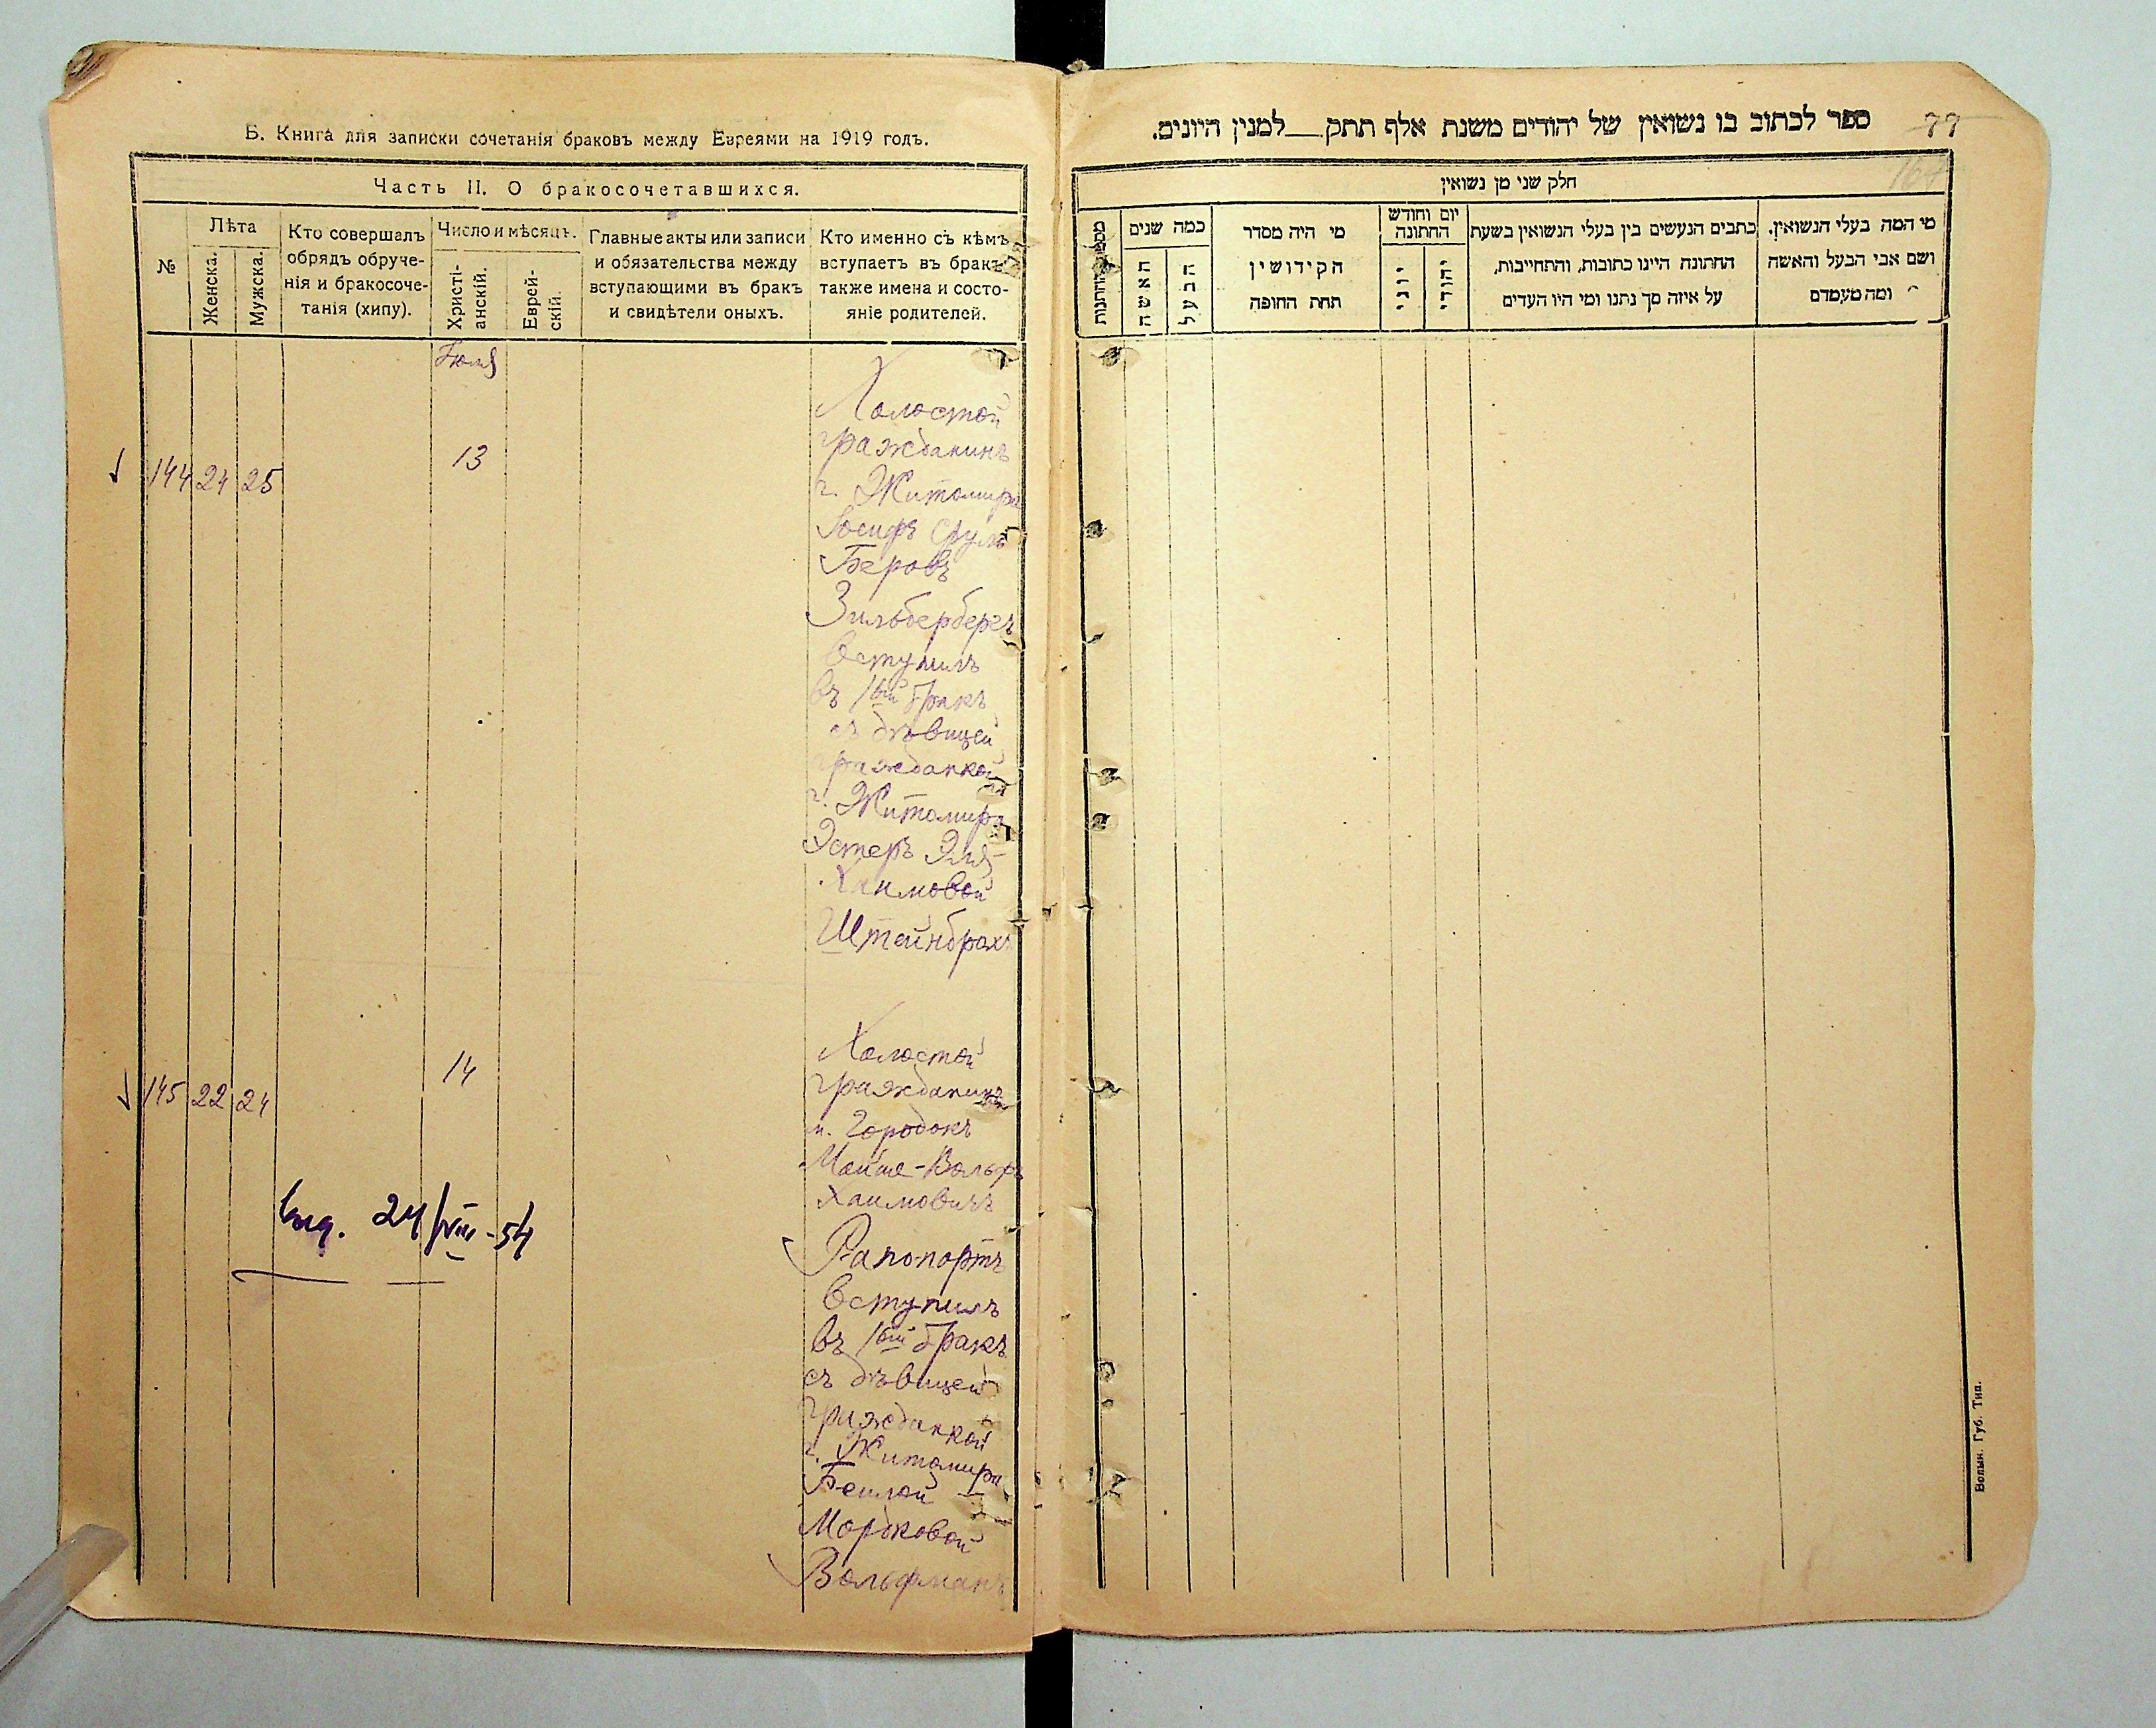 Б. Книга для записки сочетанія браковъ между Евреями на 1919 годъ.
Часть II. О бракосочетавшихся.
№
Лѣта
Женска.
Мужска.
Кто совершалъ
обрядъ обруче-
нія и бракосоче-
танія (хипу).
Число и мѣсяцъ.
Христі-
анскій.
Еврей-
скій.
Главные акты или записи
и обязательства между
вступающими въ бракъ
и свидѣтели оныхъ.
Кто именно съ кѣмъ
вступаетъ въ бракъ
также имена и состо-
яніе родителей.
Іюля
144 24 25
13
Холостой
гражданинъ
г. Житомира
Іосифъ Сруль
Беровъ
Зильбербергъ
вступилъ
въ 1ый бракъ
съ дѣвицей
гражданкой
г. Житомира
Эстеръ Эля
Хаимовой
Штейнбрахъ
145 22 24
14
Холостой
гражданинъ
м. Городокъ
Мойше-Вольфъ
Хаимовичъ
Рапопортъ
вступилъ
въ 1ый бракъ
съ дѣвицей
гражданкой
г. Житомира
Бейлой
Мордковой
Вольфманъ
24/VIII-54
ספר לכתוב בו נשואין של יהודים משנת אלף תתק__למנין היונים.
77
164
חלק שני מן נשואין
מי המה בעלי הנשואין.
ושם אבי הבעל והאשה
ומה מעמדם
כתבים הנעשים בין בעלי הנשואין בשעת
החתונה היינו כתובות, והתחייבות,
על איזה סך נתנו ומי היו העדים
יום וחודש
החתונה
יהודי
יוני
מי היה מסדר
הקידושין
תחת החופה
כמה שנים
הבעל
האשה
מספר החתונות
Волын. Губ. Тип.